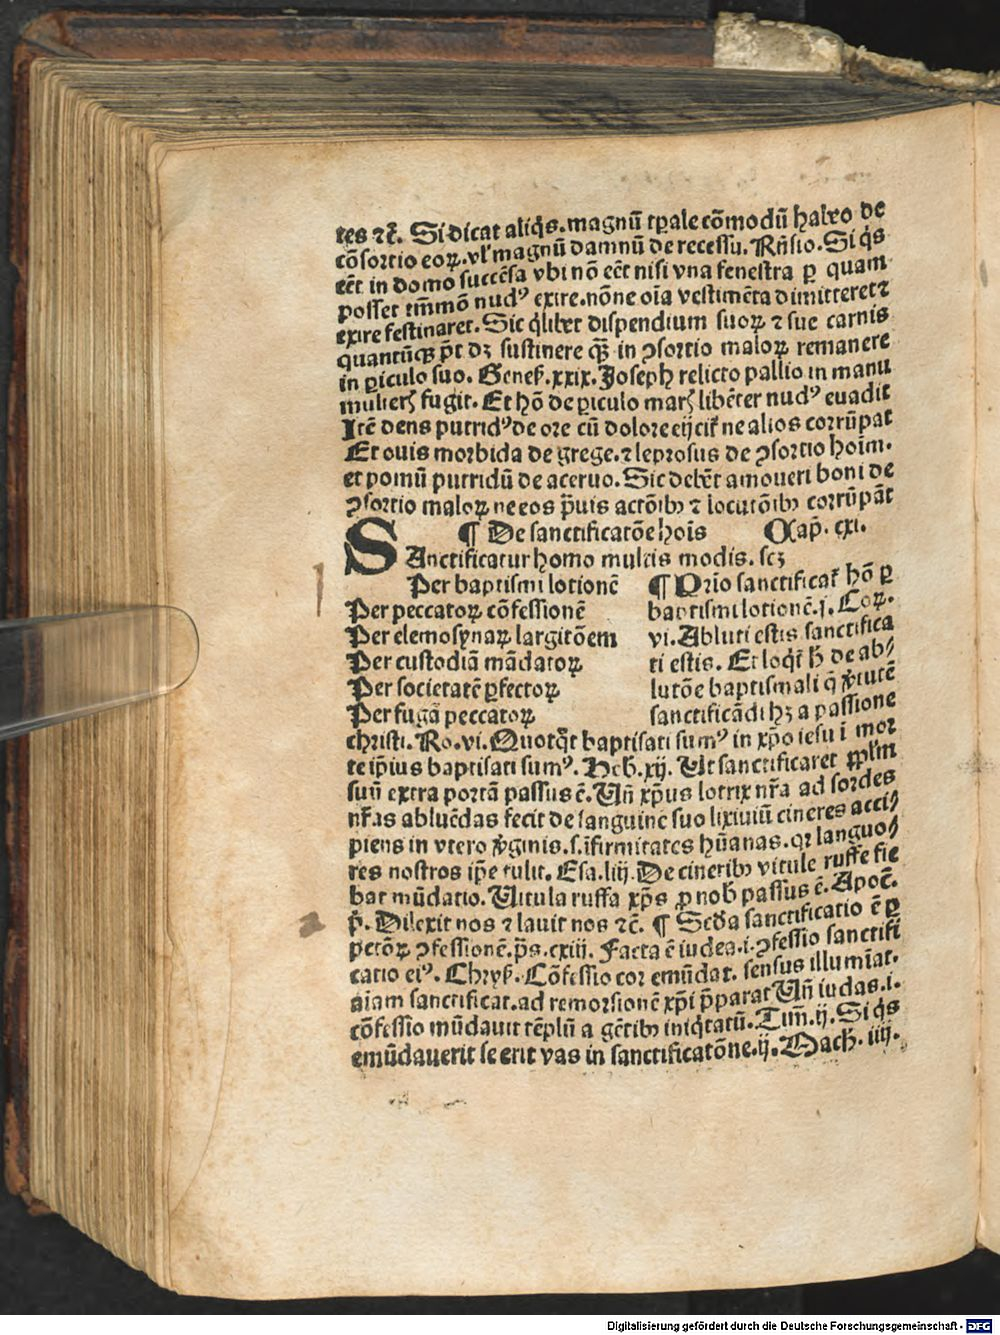 tes ⁊c̄. Si dicat aliq̇s. magnū tꝑale cōmodū habeo de
cōsortio eoꝝ. vl' magnū damnū de recessu. Rn̄sio. Si q̇s
eēt in domo succēsa vbi nō eēt nisi vna fenestra ꝑ quam
posset tm̄mō nudꝰ exire. nōne oīa vestimēta dimitteret ⁊
exire festinaret. Sic q̇libet dispendium suoꝝ ⁊ sue carnis
quantūcꝗ p̄t dꝫ sustinere qꝫ̄ in ꝯsortio maloꝝ remanere
in ꝑiculo suo. Genes̄. xxix. Joseph relicto pallio in manu
mulierꝭ fugit. Et hō de ꝑiculo marꝭ libēter nudꝰ euadit
Itē dens putridꝰ de ore cū dolore eijcit̄ ne alios corrūpat
Et ouis morbida de grege. ⁊ leprosus de ꝯsortio hoīm.
et pomū putridū de aceruo. Sic debēt amoueri boni de
ꝯsortio maloꝝ ne eos p̄uis actōibꝫ ⁊ locutōibꝫ corrūpāt
¶ De sanctificatōe hoīs Cap̄. cxi.
SAnctificatur homo multis modis. scꝫ
Per baptismi lotionē
Per peccatoꝝ cōfessionē
Per elemosynaꝝ largitōem
Per custodiā mādatoꝝ
Per societatē ꝑfectoꝝ
Per fugā peccatoꝝ
¶ Prīo sanctificat̄ hō ꝑ
baptismi lotionē. j. Coꝝ.
vi. Abluti estis sanctifica
ti estis. Et loqt̄ h̄ de ab⸗
lutōe baptismali q̄ v̇tutē
sanctificādi hꝫ a passione
christi. Ro. vi. Quotq̇t baptisati sumꝰ in xp̄o iesu ī mor
te ip̄ius baptisati sumꝰ. Heb. xij. Ut sanctificaret pp̄lm̄
suū extra portā passus ē. Un̄ xp̄us lotrix nr̄a ad sordes
nr̄as abluēdas fecit de sanguine suo lixiuiū cineres acci⸗
piens in vtero v̇ginis. s. īfirmitates hūanas. qꝛ languo⸗
res nostros ip̄e tulit. Esa. liij. De cineribꝫ vitule ruffe fie
bat mūdatio. Vitula ruffa xp̄s ꝓ nob̄ passus ē. Apoc̄.
p̄. Dilexit nos ⁊ lauit nos ⁊c̄. ¶ Scd̄a sanctificatio ē ꝑ
pctōꝝ ꝯfessionē. p̄s. cxiij. Facta ē iudea. i. ꝯfessio sanctifi
catio eiꝰ. Chrys̄. Cōfessio cor emūdat. sensus illumīat.
aīam sanctificat. ad remorsionē xp̄i p̄parat Un̄ iudas. i.
cōfessio mūdauit tēplū a gētibꝫ iniq̇tatū. Tim̄. ij. Si q̇s
emūdauerit se erit vas in sanctificatōne. ij. Mach̄. iiij.
Digitalisierung gefördert durch die Deutsche Forschungsgemeinschaft - DFG